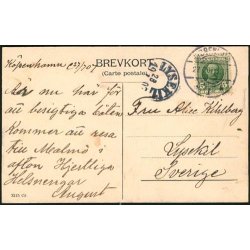 BREVKORT
(Carte postale)
Köpenhamn 27/7 07
LYSEKIL
Är nu här för
att besigtiga båten
Kommer att resa
till Malmö i
afton Hjertliga
Helsningar
August
Fru Alice Kihlberg
Lysekil
Sverige